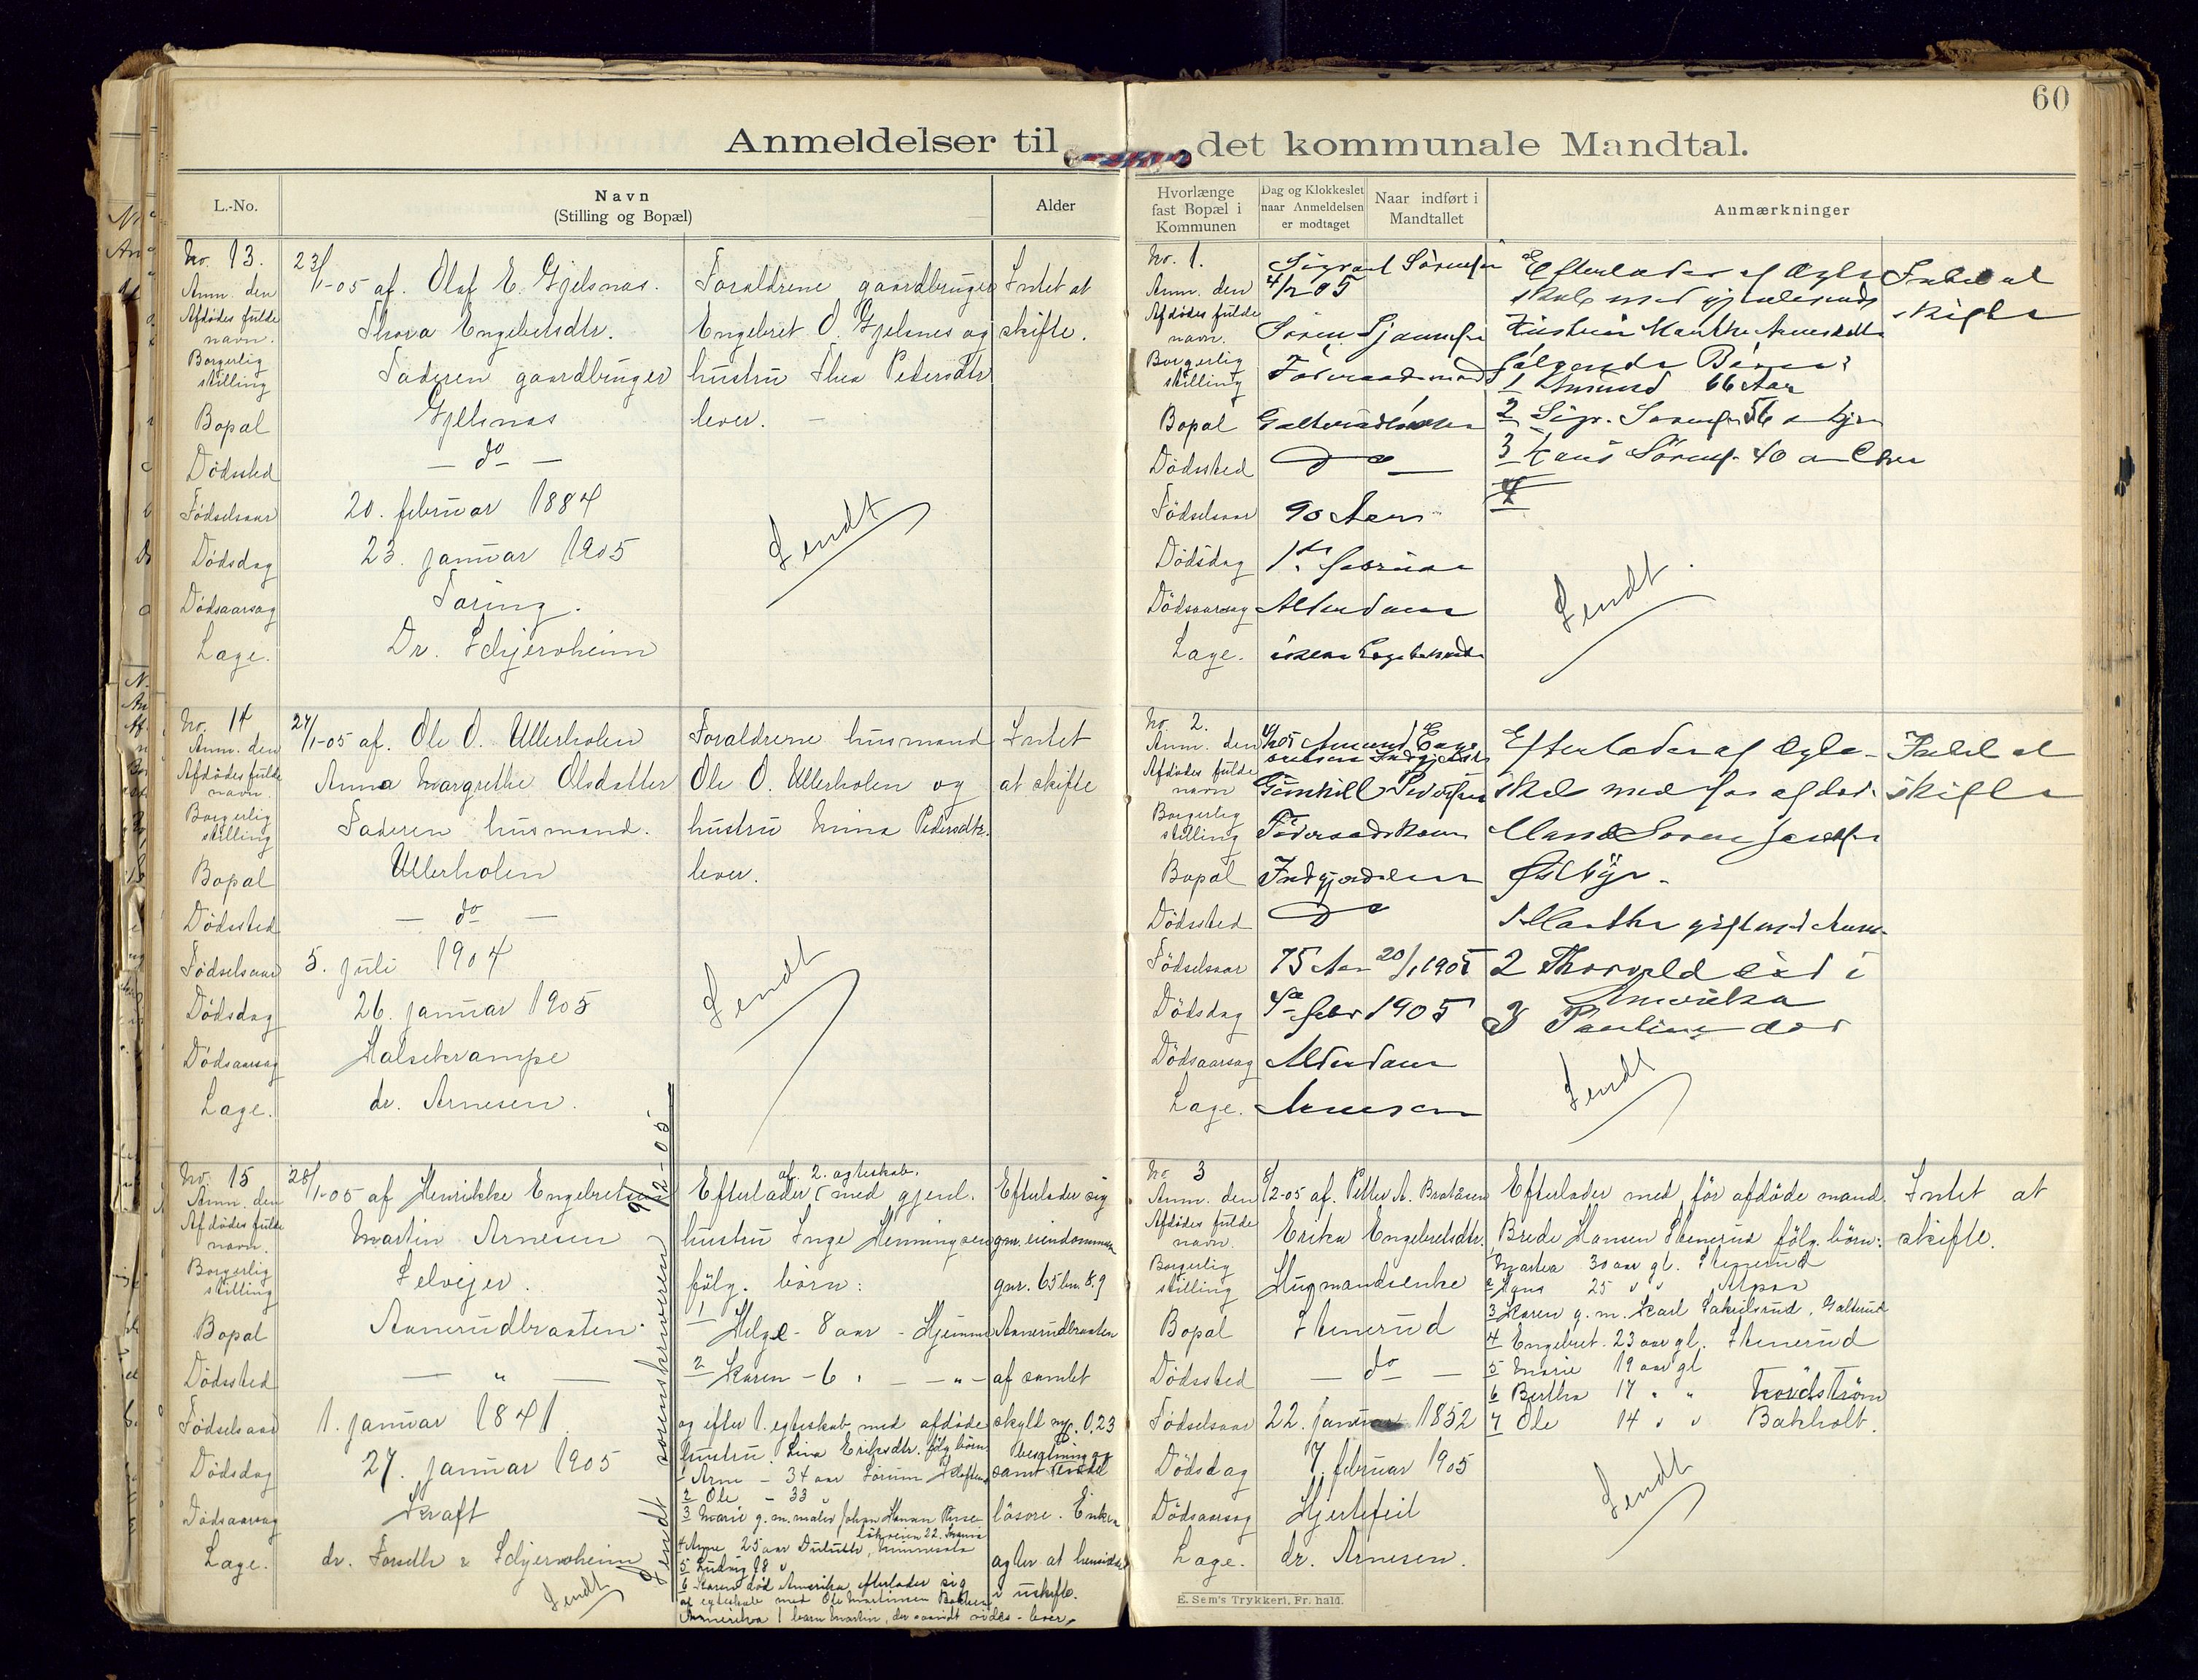 60
Anmeldelser til det kommunale Mandtal.
L.-No.
Navn
(Stilling og Bopæl)
Alder
Hvorlænge
fast Bopæl i
Kommunen
Dag og Klokkeslet
naar Anmeldelsen
er modtaget
Naar indført i
Mandtallet
Anmærkninger
No. 13.
Anm. den 23/1-05 af. Olaf E. Gjelsnas.
Afdödes fulde
navn. Thora Engebretsdtr.
Borgerlig
stilling Faderen gaardbruger
Bopal Gjelsnas
Dödssted — do —
Födselsaar 20. februar 1884
Dödsdag 23. januar 1905
Dödsaarsag Taring.
Lage. Dr. Schjervheim
Foraldrene gaardbruger
Engebret O. Gjelsnes og
hustru Thea Pedersdtr
lever. —
Sendt
Intet at
skifte.
No. 14
Anm. den 27/1-05 af. Ole O. Ullerholen
Afdödes fulde
navn. Anna Margrethe Olsdatter
Borgerlig
stilling Faderen husmand.
Bopal Ullerholen
Dödssted — do —
Födselsaar 5. juli 1904
Dödsdag 26. januar 1905
Dödsaarsag Halsekrampe
Lage. dr. Arnesen.
Foraldrene husmand
Ole O. Ullerholen og
hustru Mina Pedersdtr.
lever.
Sendt
Intet
at skifte
No. 15
Anm. den 28/1-05 af Henrikke Engebretsen
Afdödes fulde
navn. Martin Arnesen
Borgerlig
stilling Selvejer.
Bopal Aanerudbraaten.
Dödssted — " —
Födselsaar 1. januar 1841
Dödsdag 27. januar 1905
Dödsaarsag Kraft
Lage. dr. Forseth & Schjervheim
Sendt
Sendt sorenskriveren 9/2-05
af. 2. agteskab.
Efterlader med gjenl.
hustru Inge Henningsen
fölg. börn:
1 Helge - 8 aar - Hjemme
2 Karen - 6 " — " —
og efter 1. egteskab med afdöde
hustru Lina Eriksdtr. fölg börn
1 Arne - 34 aar Sörum
2 Ole - 33 "
3 Marie g. m. maler Johan Hansen
4 25 aar Duluth, Minnesota
5 Ludvig 18 "
6 Karen död Amerika efterlader sig
af egteskab med Ole Martinsen Bakken
Amerika 1 barn Martin, der saavidt vides - lever.
Efterlader sig
gm. eiendommen
gnr. 65 bn. 8.9
Aanerudbraaten
af samlet
skyld 0,23
besatning og
samt
lösöre. Enken
agter at hensidde
i uskifte.
No. 1.
Anm. den 4/2 05
Afdödes fulde
navn.
Borgerlig
stilling Föderaadsmand
Bopal
Dödssted do —
Födselsaar 90 Aar
Dödsdag 1ste februar
Dödsaarsag Alderdom
Lage. uden Lagebehandl
Efterlader af Ægte
skab med gjenlevende
følgende Börn:
1 Amund 66 Aar
2 Sigv. Sörensen 56 a hjm
3 Hans Sörens. 40 a
4
Sendt
Intet at
skifte
No. 2.
Anm. den
Afdödes fulde
navn Gunhild Pedersen
Borgerlig
stilling Föderaadskone
Bopal Indgjerdelsen
Dödssted do
Födselsaar 75 Aar 20/1 1905
Dödsdag 4de febr 1905
Dödsaarsag Alderdom
Lage. Arnesen
Efterlader af Ægte-
skab med før afdøde
Østbye -
1 Marthe gift med
2 Thorvald död i
Amerika
3 Pauline död
Sendt
Intet at
skifte
No 3
Anm. den 8/2-05 af. Petter A. Braatesen
Afdödes fulde
navn. Erika Engebretsdtr.
Borgerlig
stilling Husmandsenke
Bopal Stenerud
Dödssted — do —
Födselsaar 22. januar 1852
Dödsdag 7. februar 1905
Dödsaarsag Hjertefeil
Lage. dr. Arnesen.
Efterlader med för afdöde mand
Brede Hansen Stenerud fölg. börn:
1 Martea 30 aar gl. Stenerud
2 Hans 25 " " Alpaa
3 Karen g. m. Karl Sakrilsrud, Galterud
4 Engebret. 23 aar gl. Stenerud
5 Marie 19 aar gl
6 Bertha 17 " " Nordström
7 Ole 14 " " Bakholt.
Sendt
Intet at
skifte.
E. Sem's Trykkeri, Fr. hald.